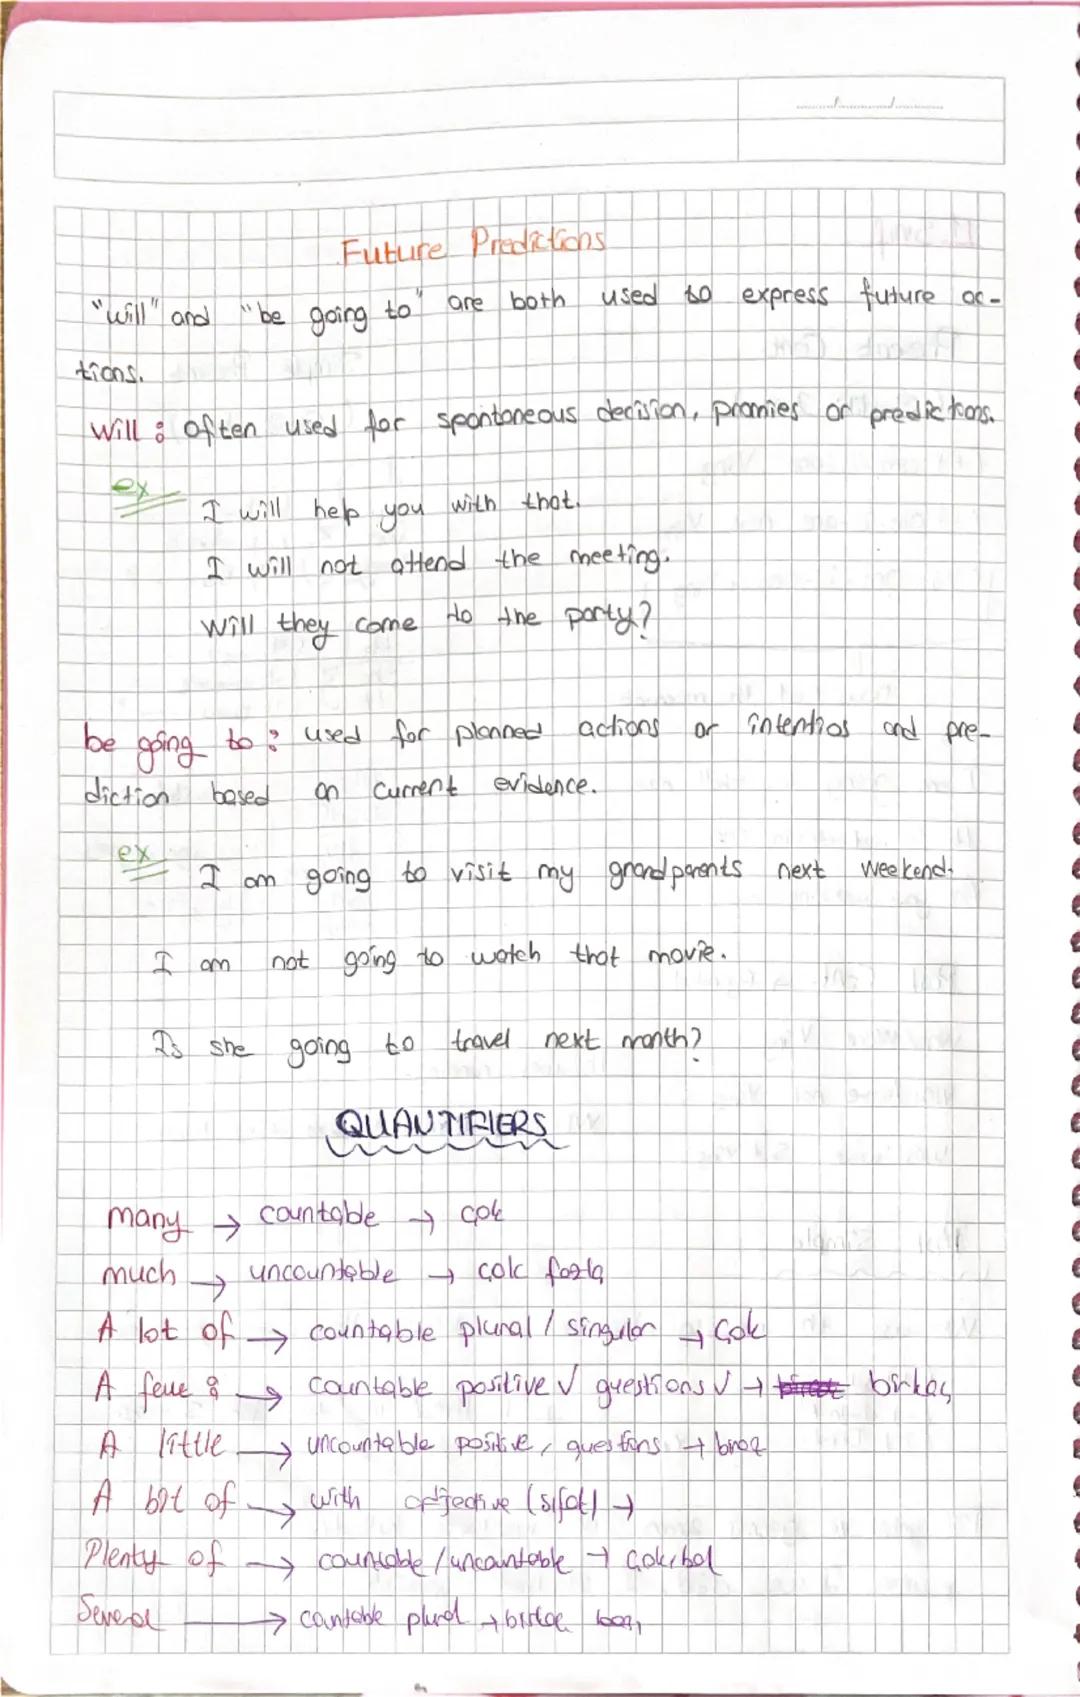 Future Predictions
"will" and "be going to" are both used to express future ac-
tions.
Will : often used for spontaneous decision, promies or predictions.
ex
I will help you with that.
I will not attend the meeting.
Will they come to the party?
be going to : used for planned actions or intentios and pre-
diction based on current evidence.
ex
I am going to visit my grandparents next weekend.
I am not going to watch that movie.
Is she going to travel next month?
QUANTIFIERS
many → countable → çok
much → uncountable → çok fazla
A lot of → countable plural / singular → Çok
A few : → countable positive √ questions √ → birkaç
A little → uncountable positive, questions → biraz
A bit of → with adjective (sıfat) →
Plenty of → countable / uncountable → Çok, bol
Several → countable plural →